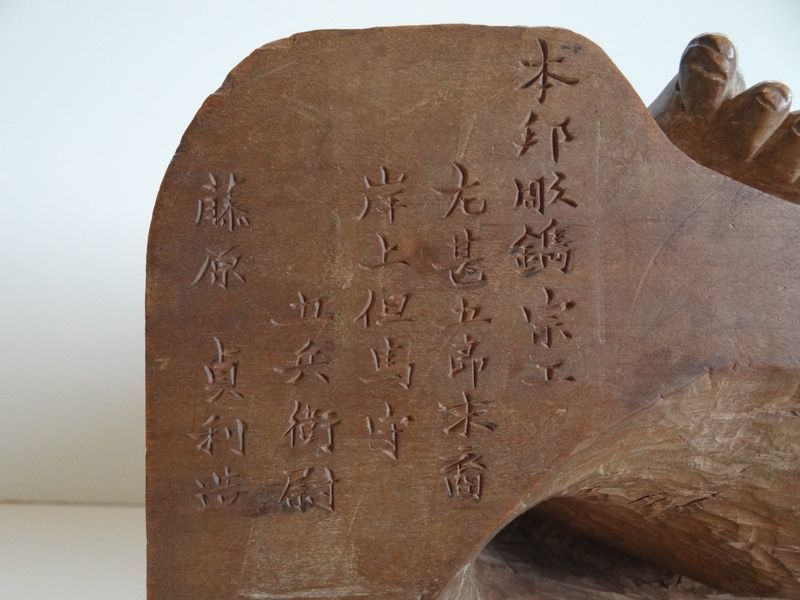 本邦彫鐫宗工
左甚五郎末裔
岸上但馬守
五兵衛尉
藤原 貞利造